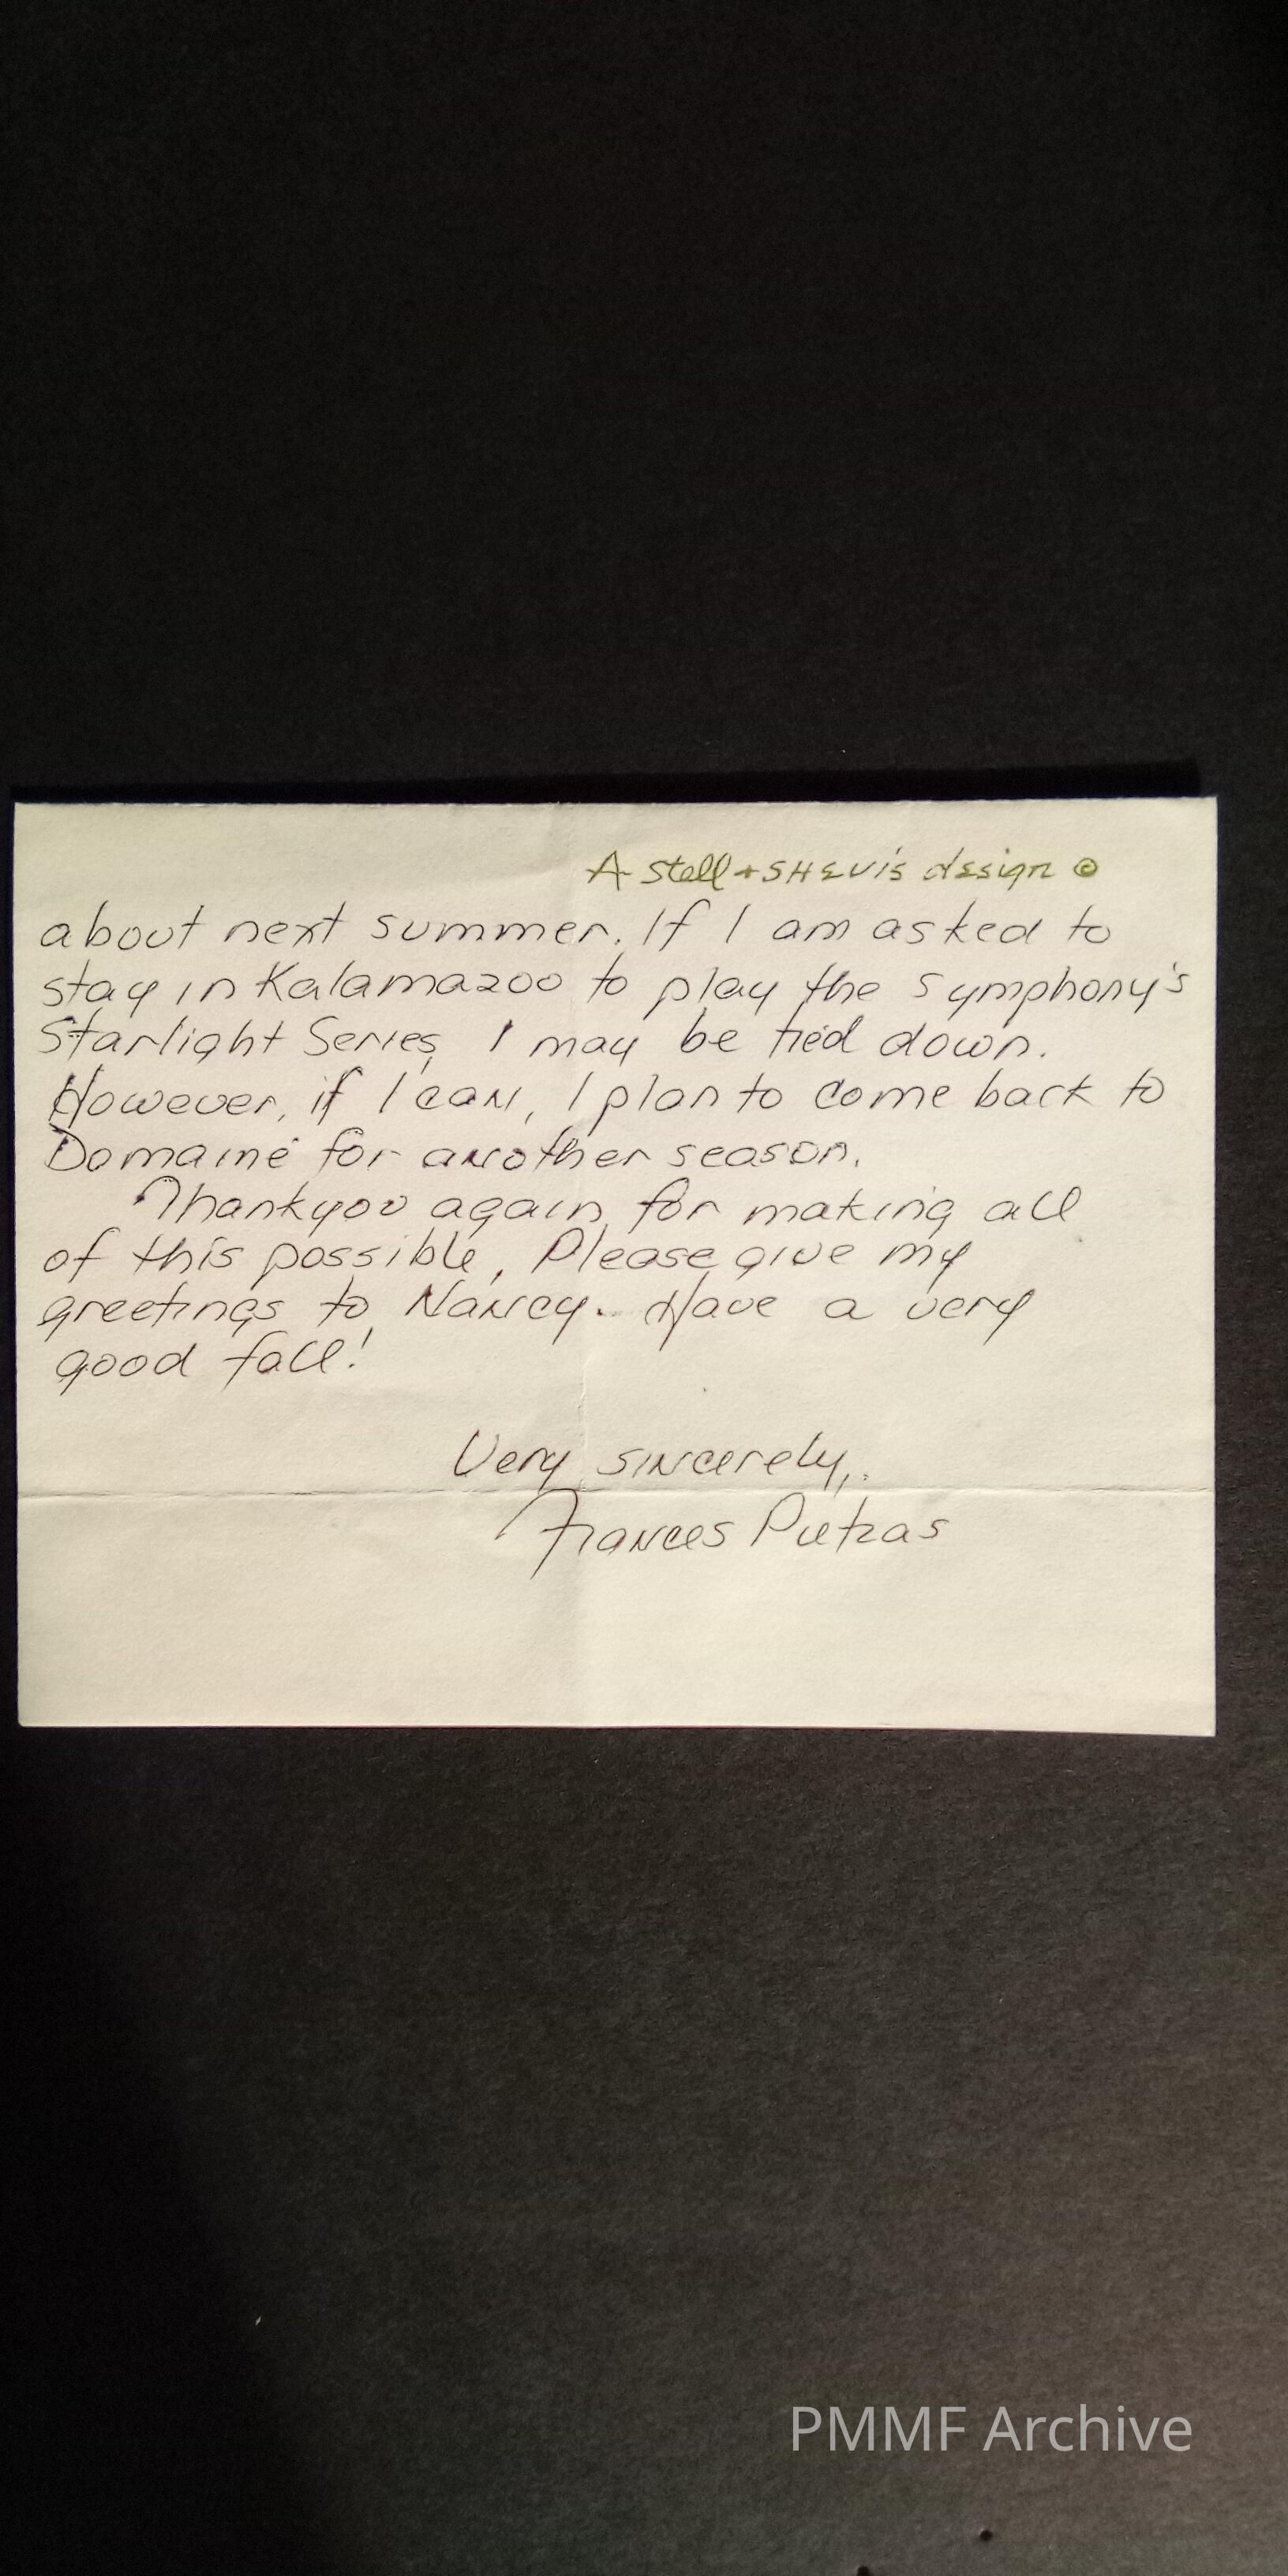 A Stell + SHEViS design ©
about next summer. If I am asked to
stay in Kalamazoo to play the Symphony's
Starlight Series, I may be tied down.
However, if I can, I plan to come back to
Domaine for another season.
Thankyou again for making all
of this possible. Please give my
greetings to Nancy. Have a very
good fall!
Very sincerely,
Frances Pietras
PMMF Archive